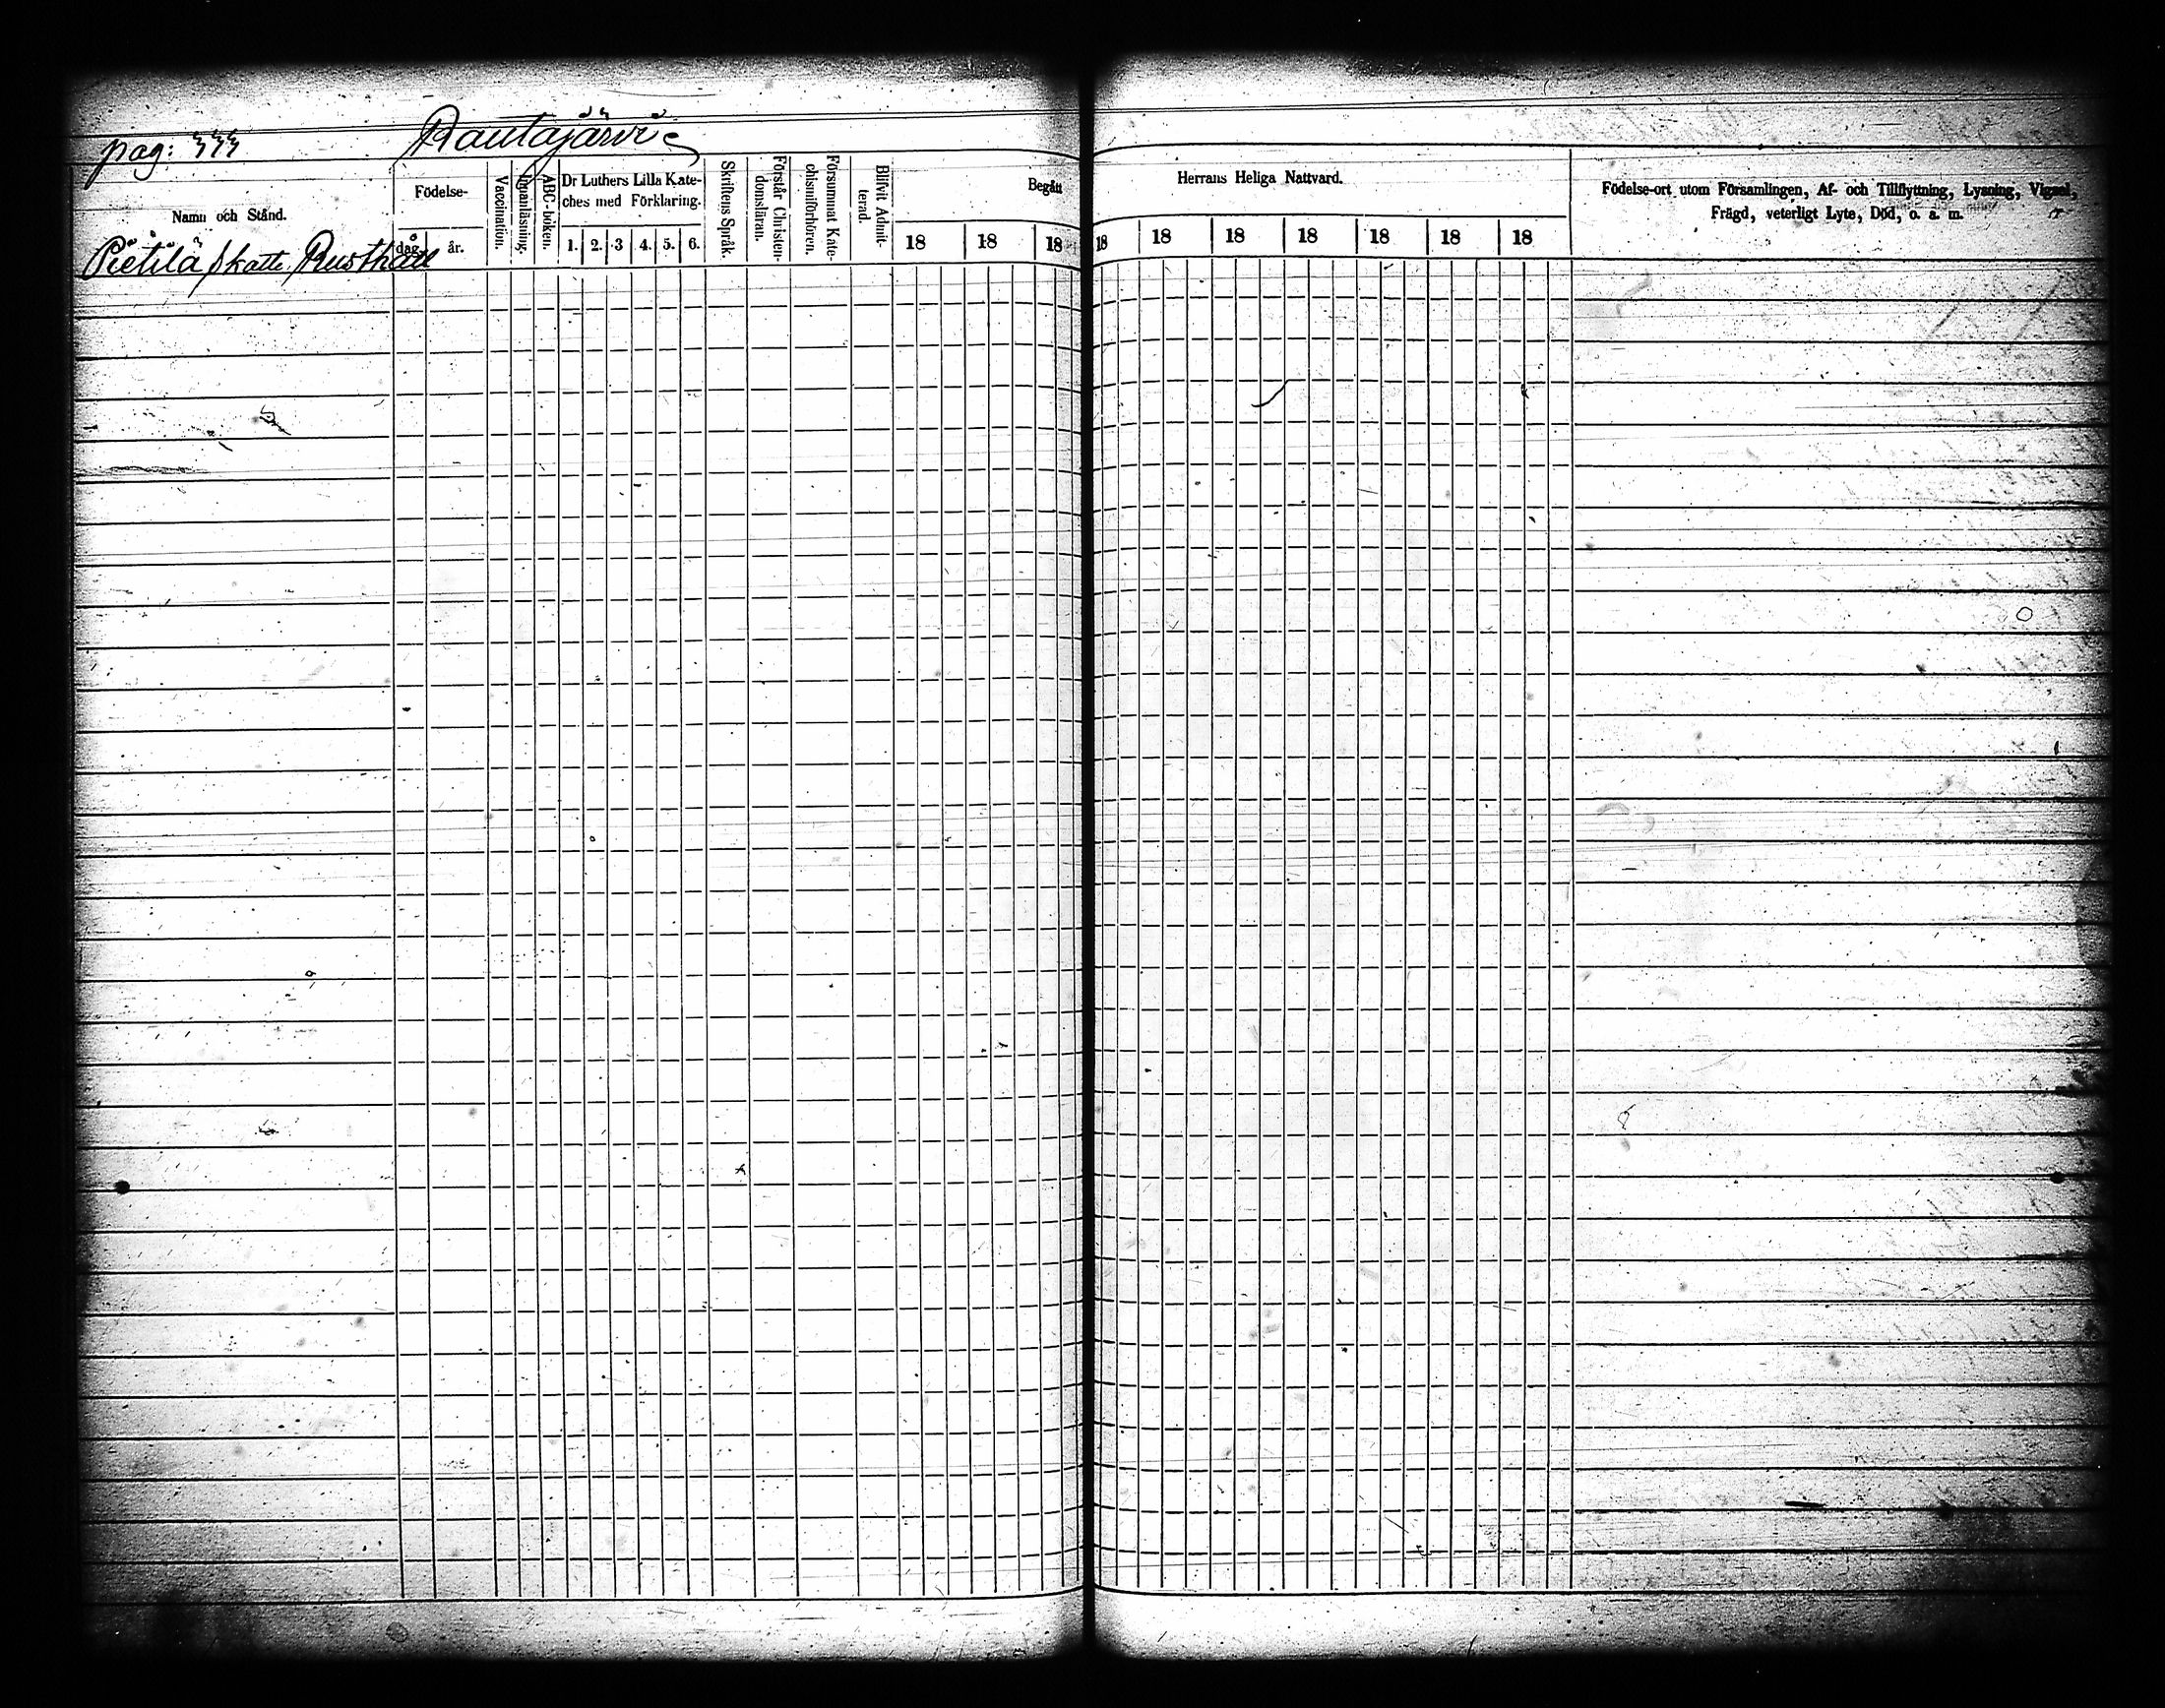 pag: 333 Rautajärvi
Namn och Stånd.
Födelse-
dag.
år.
Vaccination.
Innanläsning.
ABC-boken.
Dr Luthers Lilla Kate-
ches med Förklaring.
1. 2. 3 4. 5. 6.
Skriftens Språk.
Förstår Christen-
domsläran.
Försummat Kate-
chismiförhören.
Blifvit Admit-
terad.
Begått
18 18 18
Herrans Heliga Nattvard.
18 18 18 18 18 18 18
Födelse-ort utom Församlingen, Af- och Tillflyttning, Lysning, Vigsel,
Frägd, veterligt Lyte, Död, o. a. m.
Pietilä Skatte Rusthåll